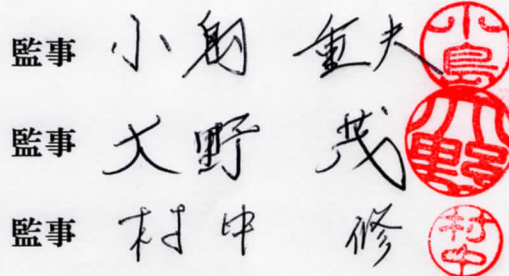 監事 小島 重夫 小島
監事 大野 茂 大野
監事 村中 修 村中